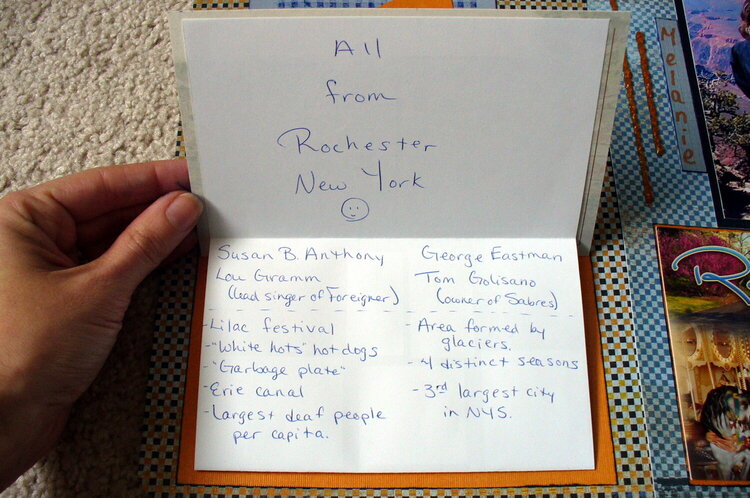 All
from
Rochester
New York
Susan B. Anthony
Lou Gramm
(lead singer of Foreigner)
- Lilac festival
- "White hots" hot dogs
- "Garbage plate"
- Erie canal
- Largest deaf people
per capita.
George Eastman
Tom Golisano
(owner of Sabres)
- Area formed by
glaciers.
- 4 distinct seasons
- 3rd largest city
in NYS.
Melanie